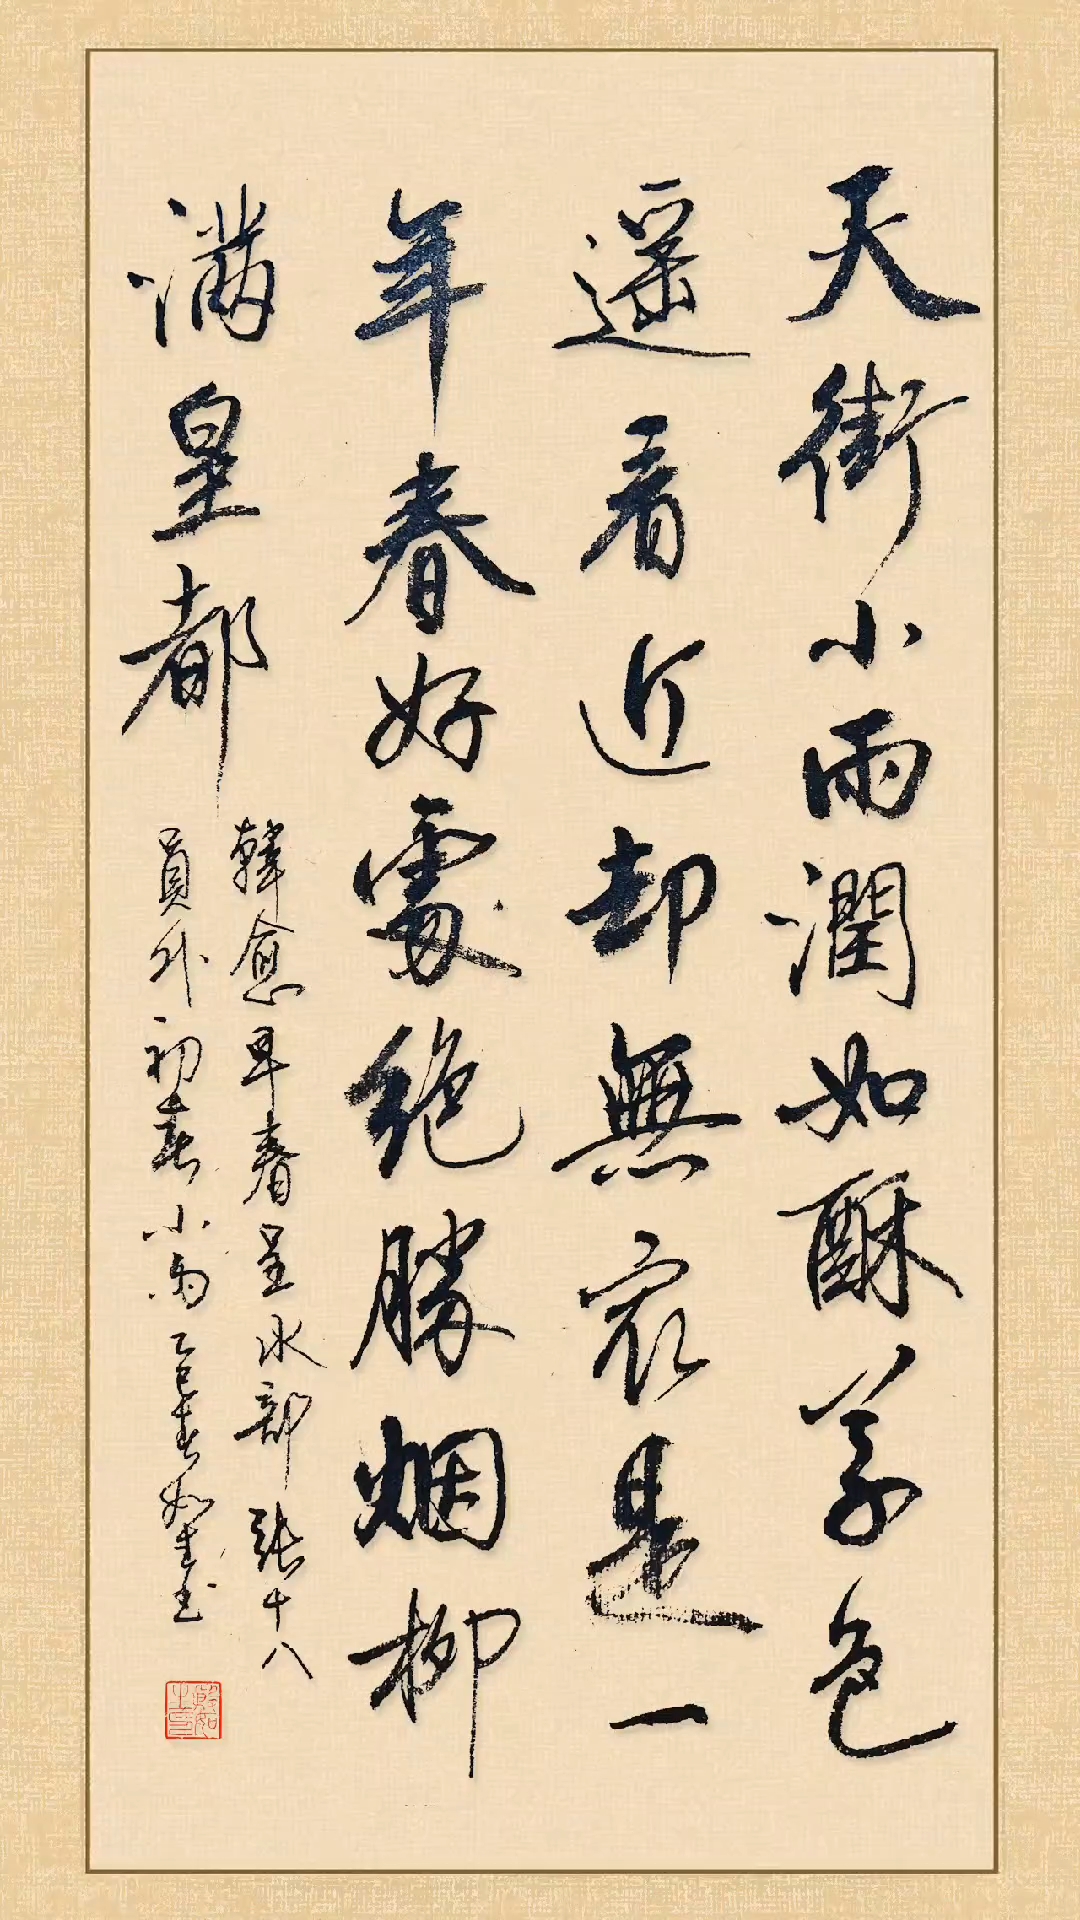 天街小雨潤如酥草色
遥看近却無宸是一
年春好處絶勝烟柳
满皇都
韓愈早春呈水部張十八
員外初春小雨乙巳春如生书